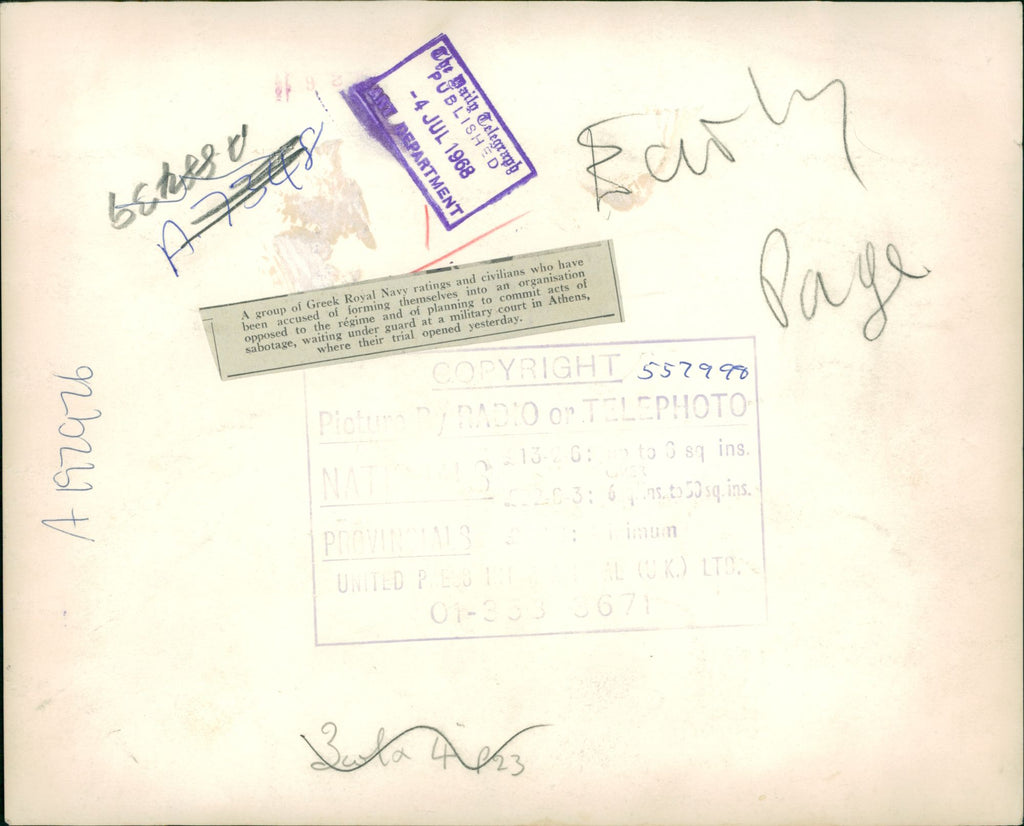 The Daily Telegraph
PUBLISHED
-4 JUL 1968
DEPARTMENT
Early
Page
A 7348
A group of Greek Royal Navy ratings and civilians who have
been accused of forming themselves into an organisation
opposed to the régime and of planning to commit acts of
sabotage, waiting under guard at a military court in Athens,
where their trial opened yesterday.
COPYRIGHT
557998
Picture / RADIO or TELEPHOTO
£13-2-6: up to 6 sq ins.
OVER
NATIONALS
6 sq ins. to 50 sq. ins.
PROVINCIALS
minimum
UNITED PRESS INTERNATIONAL (U.K.) LTD.
01-353 3671